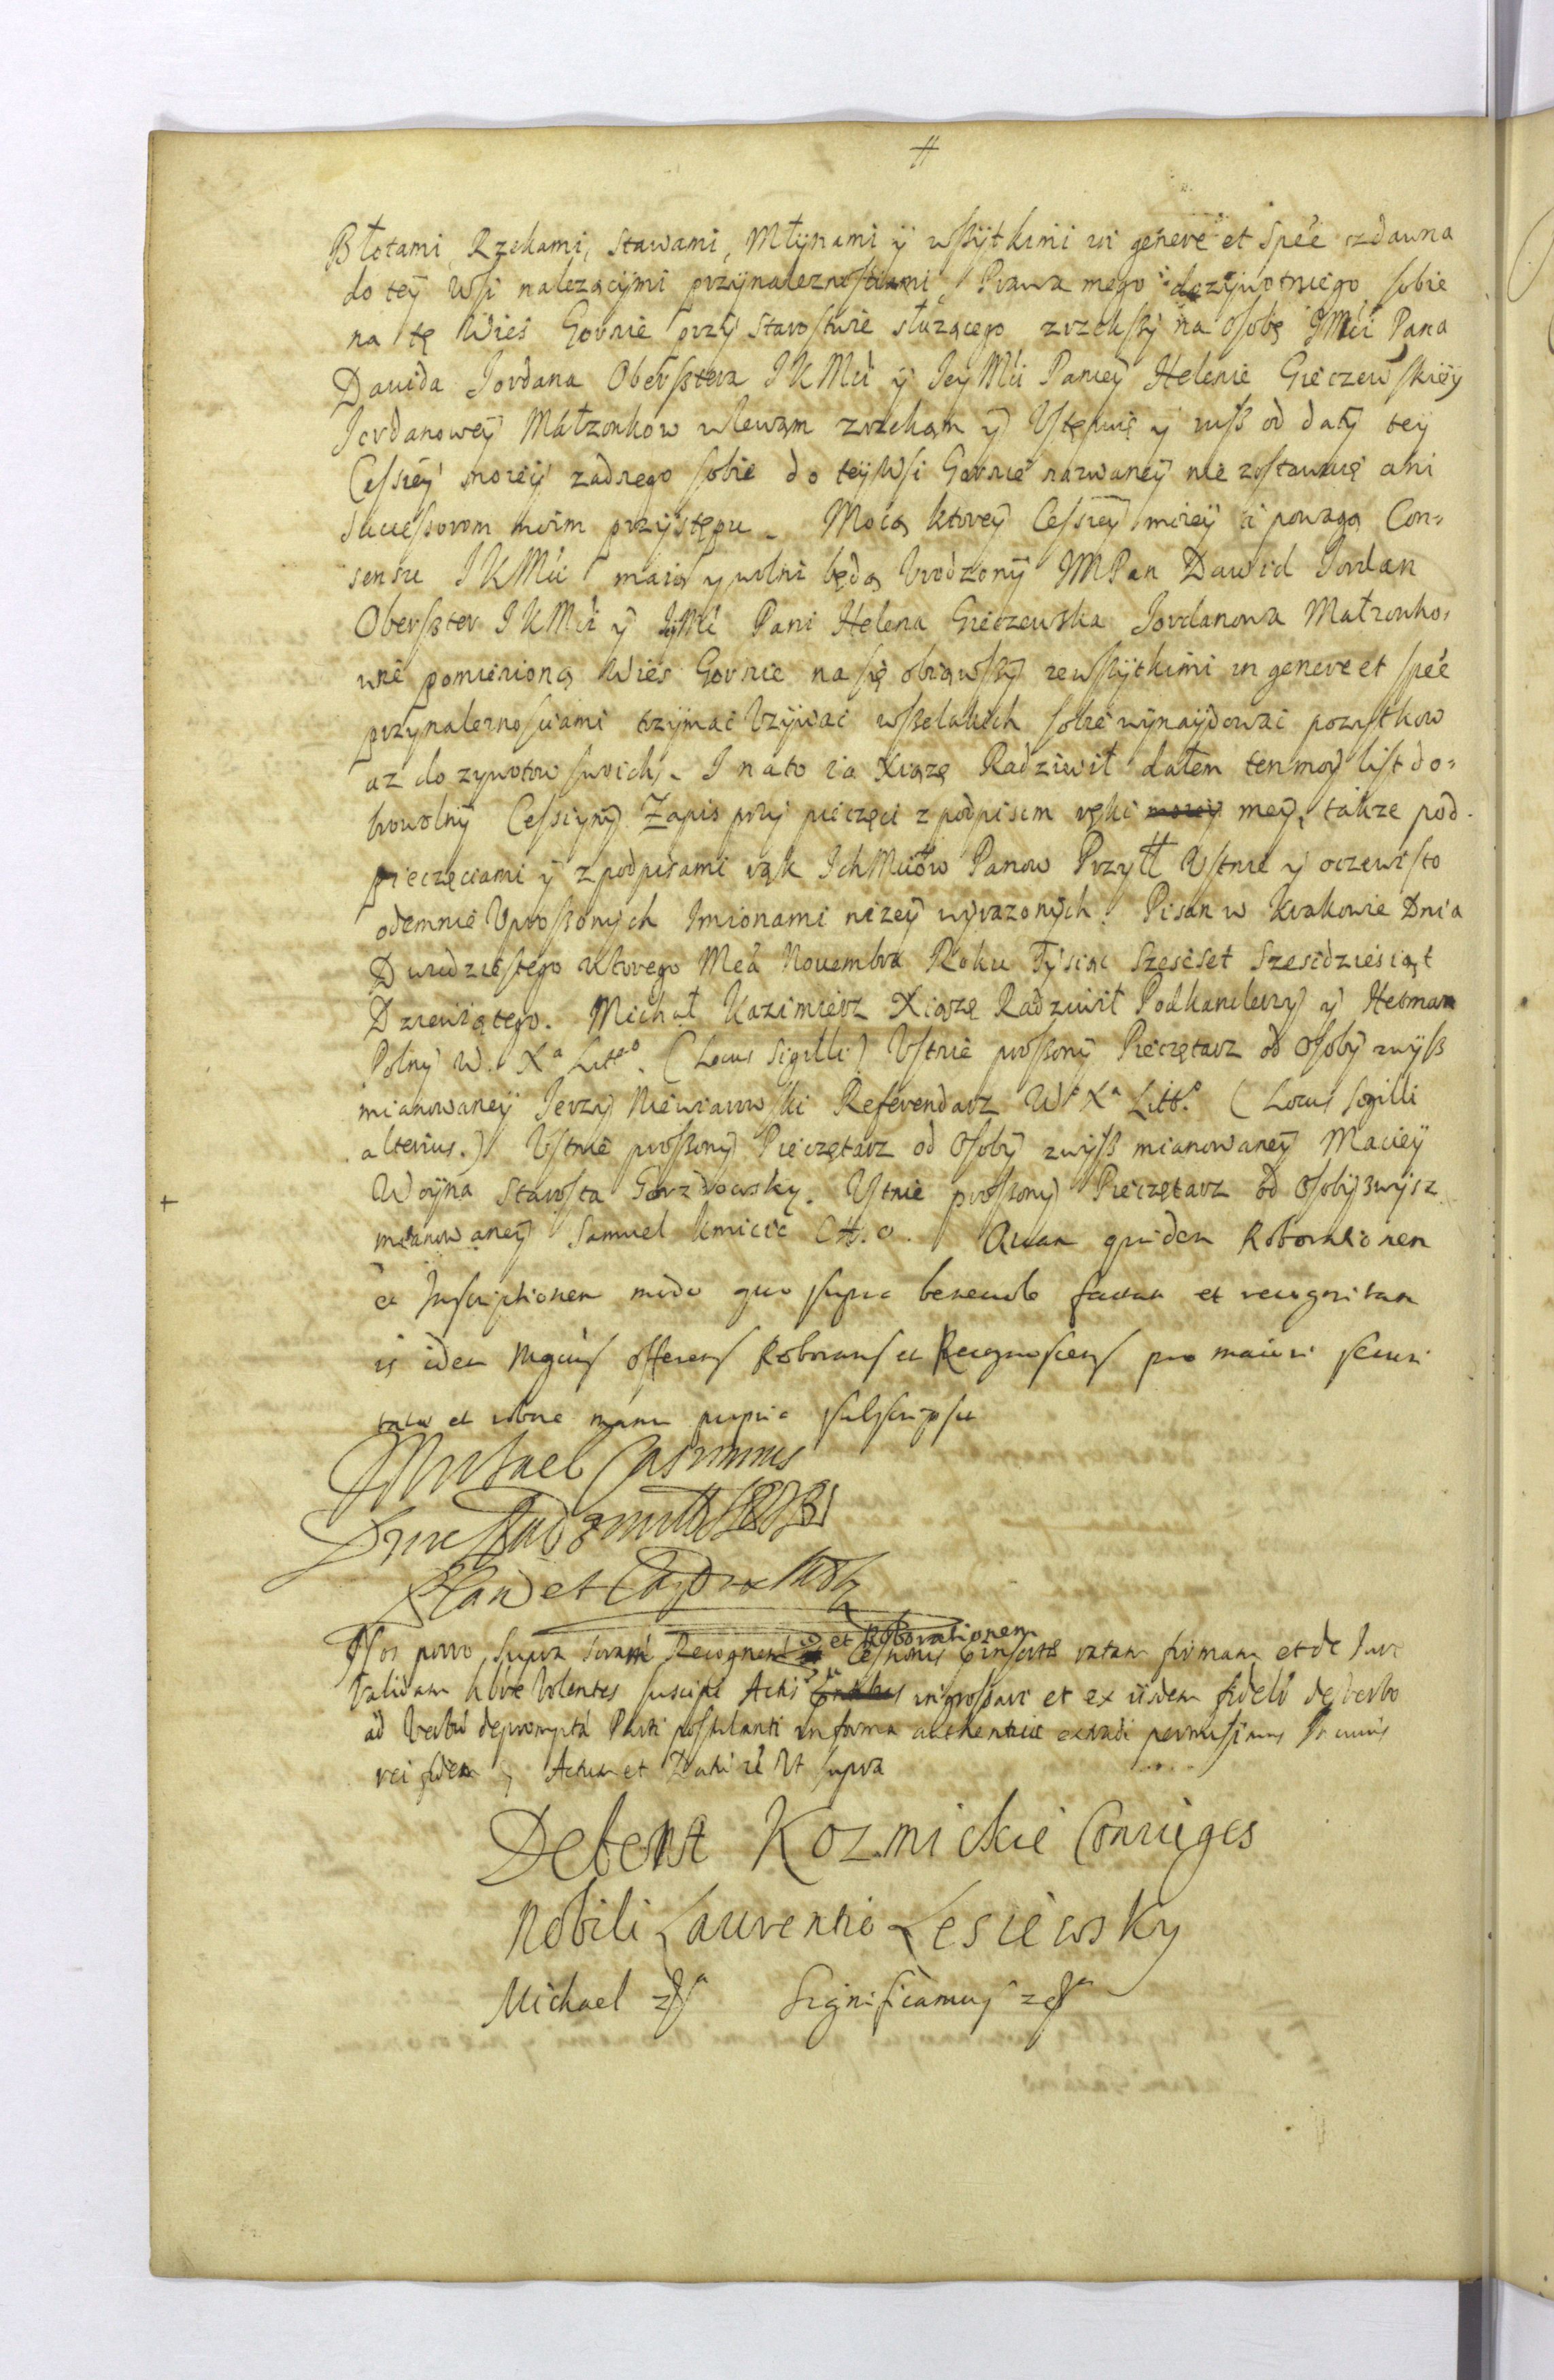 Błotami, Rzekami, Stawami, Młynami ÿ wszÿtkimi in genere et spe'e zdawna
do teÿ Wsi należącÿmi przÿnależnosciami, Prawa mego dożÿwotniego sobie
na tę Wieś Gornie przÿ Starostwie służącego zrzekszÿ na Osobę JMći Pana
Dawida Jordana Obersztera JKMći ÿ JeÿMći Panieÿ Helenie Gieczewskieÿ
Jordanoweÿ Małzonkow wlewam zrzekam ÿ Ustępuię ÿ iusz od datÿ teÿ
Cessieÿ moieÿ zadnego sobie do teÿ Wsi Gornie nazwaneÿ nie zostawuię ani
Sucessorom moim przÿstępu. Mocą ktoreÿ Cessieÿ moieÿ i powagą Con=
sensu JKMći maią ÿ wolni będą Urodzonÿ JMPan Dawid Jordan
Oberszter JKMći ÿ JMći Pani Helena Gieczewska Jordanowa Małzonko,
wie pomienioną Wieś Gornie na się obiąwszÿ zewszÿtkimi in genere et spe'e
przynaleznosciami trzÿmać Uzÿwać wszelakich sobie wÿnaÿdować pozÿtkow
az do zywotow swoich. I na to ia Xiąże Radziwił dałem ten moÿ list do=
browolnÿ Cessiÿnÿ Zapis przÿ pieczęci z podpisem ręki moieÿ meÿ, także pod
pieczęciami ÿ z podpisami rąk IchMćiow Panow Przÿłł Ustnie ÿ oczewisto
odemnie Uproszonych Imionami niżeÿ wÿrazonÿch. Pisan w Krakowie Dnia
Dwudziestego wtorego Mca Nouembra Roku Tÿsiąc Szescset Szescdziesiąt
Dziewiątego. Michał Kazimierz Xiąże Radziwił Podkanclerzÿ ÿ Hetman
Polnÿ W. Xa Litto. (Locus Sigilli) Ustnie proszonÿ Pieczętarz od Osobÿ zwÿsz
mianowaneÿ Jerzÿ Niewiarowski Referendarz Wo Xa Litto. (Locus Sigilli
alterius.) Ustnie proszonÿ Pieczętarz od Osobÿ zwÿsz mianowaneÿ Macieÿ
Woÿna Starosta Gorzdowskÿ. Ustnie proszonÿ Pieczętarz od Osobÿ zwÿsz
mianowaneÿ Samuel Kmicic Ch. O. Quam quidem Roborationem
et Inscriptionem modo quo supra beneuole factam et recognitam
is idem Mgcus offerens Roborans et Recognoscens pro maiori securi
tate et robore manu propria subscripsit
Michael Casimirus
Dux Radziwill
et
Nos porro, supra scriptam Recognem et Roborationem Cessionis insertae ratam firmam et de Iure
Validam habere Volentes suscipi Actis ingrossari et ex iisdem fideli de verbo
ad Verbum depromptam Parti postulanti in forma authentica extradi permisimus In cuius
rei fidem, Actum et Datum ut supra
Debent Kozmickie Coniuges
Nobili Laurentio Lesiewsky
Michael Significamus